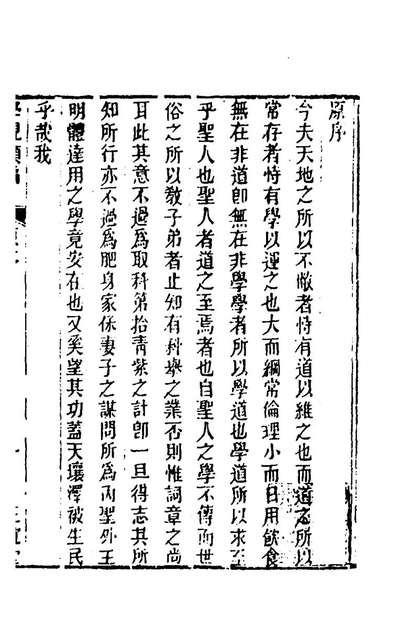 原序
今夫天地之所以不敝者恃有道以維之也而道之所以
常存者恃有學以運之也大而綱常倫理小而日用飲食
無在非道卽無在非學學者所以學道也學道所以求至
乎聖人也聖人者道之至焉者也自聖人之學不傳而世
俗之所以敎子弟者止知有科舉之業否則惟詞章之尚
耳此其意不過爲取科第拾靑紫之計卽一旦得志其所
知所行亦不過爲肥身家係妻子之謀問所爲內聖外王
明體達用之學竟安在也又奚望其功蓋天壤澤被生民
乎哉我